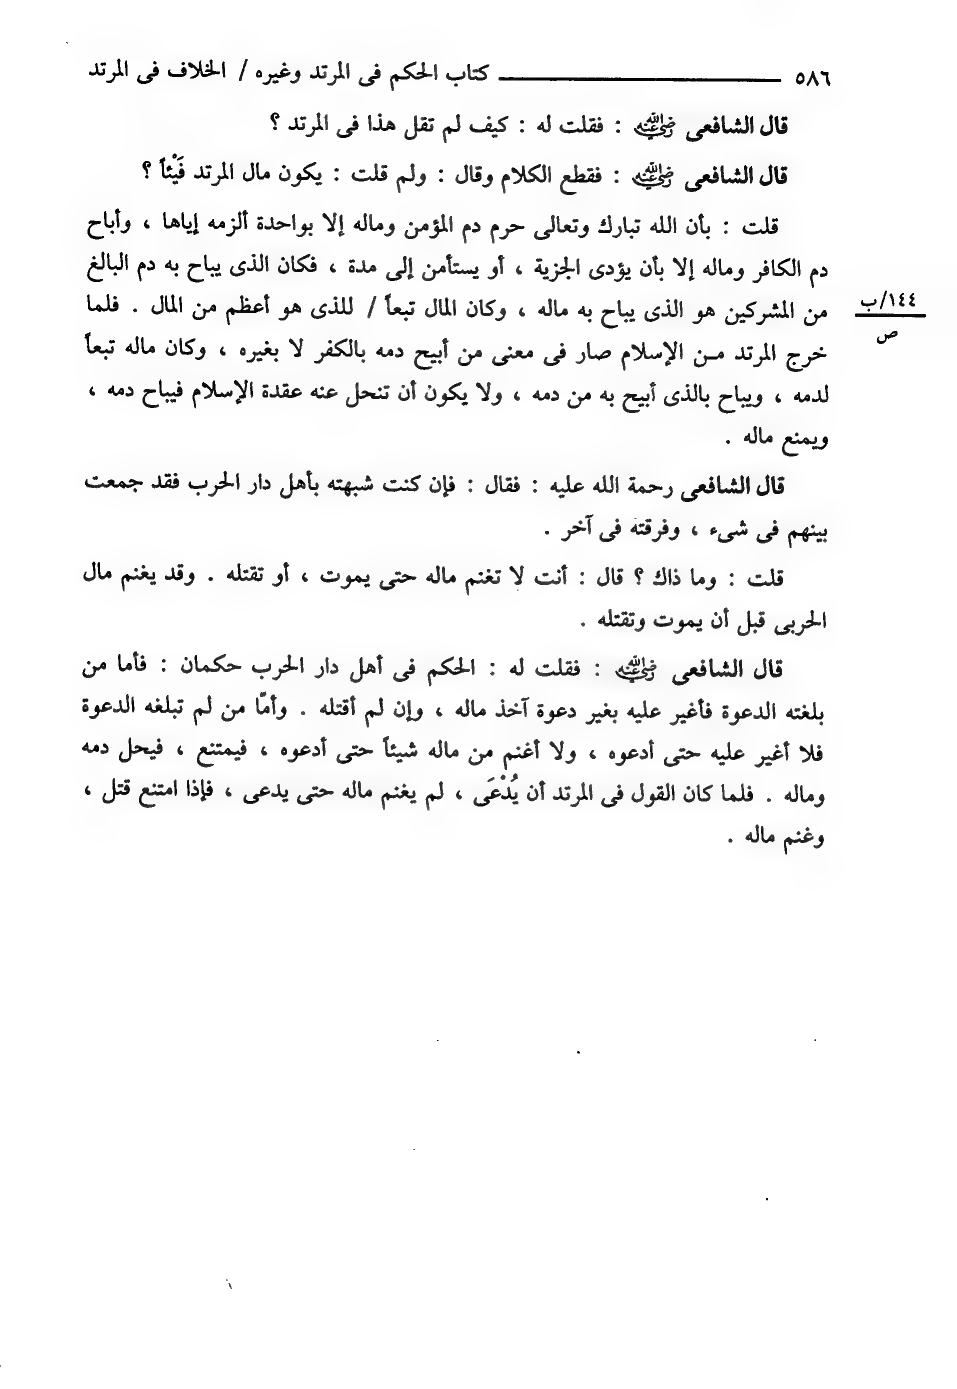 ٥٨٦ ـــــــــــــــــــــ كتاب الحكم فى المرتد وغيره / الخلاف فى المرتد
قال الشافعى رضي الله عنه : فقلت له : كيف لم تقل هذا فى المرتد ؟
قال الشافعى رضي الله عنه : فقطع الكلام وقال : ولم قلت : يكون مال المرتد فَيْئاً ؟
قلت : بأن الله تبارك وتعالى حرم دم المؤمن وماله إلا بواحدة ألزمه إياها ، وأباح
دم الكافر وماله إلا بأن يؤدى الجزية ، أو يستأمن إلى مدة ، فكان الذى يباح به دم البالغ
من المشركين هو الذى يباح به ماله ، وكان المال تبعاً / للذى هو أعظم من المال . فلما
١٤٤/ب
ص
خرج المرتد مـن الإسلام صار فى معنى من أبيح دمه بالكفر لا بغيره ، وكان ماله تبعاً
لدمه ، ويباح بالذى أبيح به من دمه ، ولا يكون أن تنحل عنه عقدة الإسلام فيباح دمه ،
ويمنع ماله .
قال الشافعى رحمة الله عليه : فقال : فإن كنت شبهته بأهل دار الحرب فقد جمعت
بينهم فى شىء ، وفرقته فى آخر .
قلت : وما ذاك ؟ قال : أنت لا تغنم ماله حتى يموت ، أو تقتله . وقد يغنم مال
الحربى قبل أن يموت وتقتله .
قال الشافعى رضي الله عنه : فقلت له : الحكم فى أهل دار الحرب حكمان : فأما من
بلغته الدعوة فأغير عليه بغير دعوة آخذ ماله ، وإن لم أقتله . وأمّا من لم تبلغه الدعوة
فلا أغير عليه حتى أدعوه ، ولا أغنم من ماله شيئاً حتى أدعوه ، فيمتنع ، فيحل دمه
وماله . فلما كان القول فى المرتد أن يُدْعَى ، لم يغنم ماله حتى يدعى ، فإذا امتنع قتل ،
وغنم ماله .